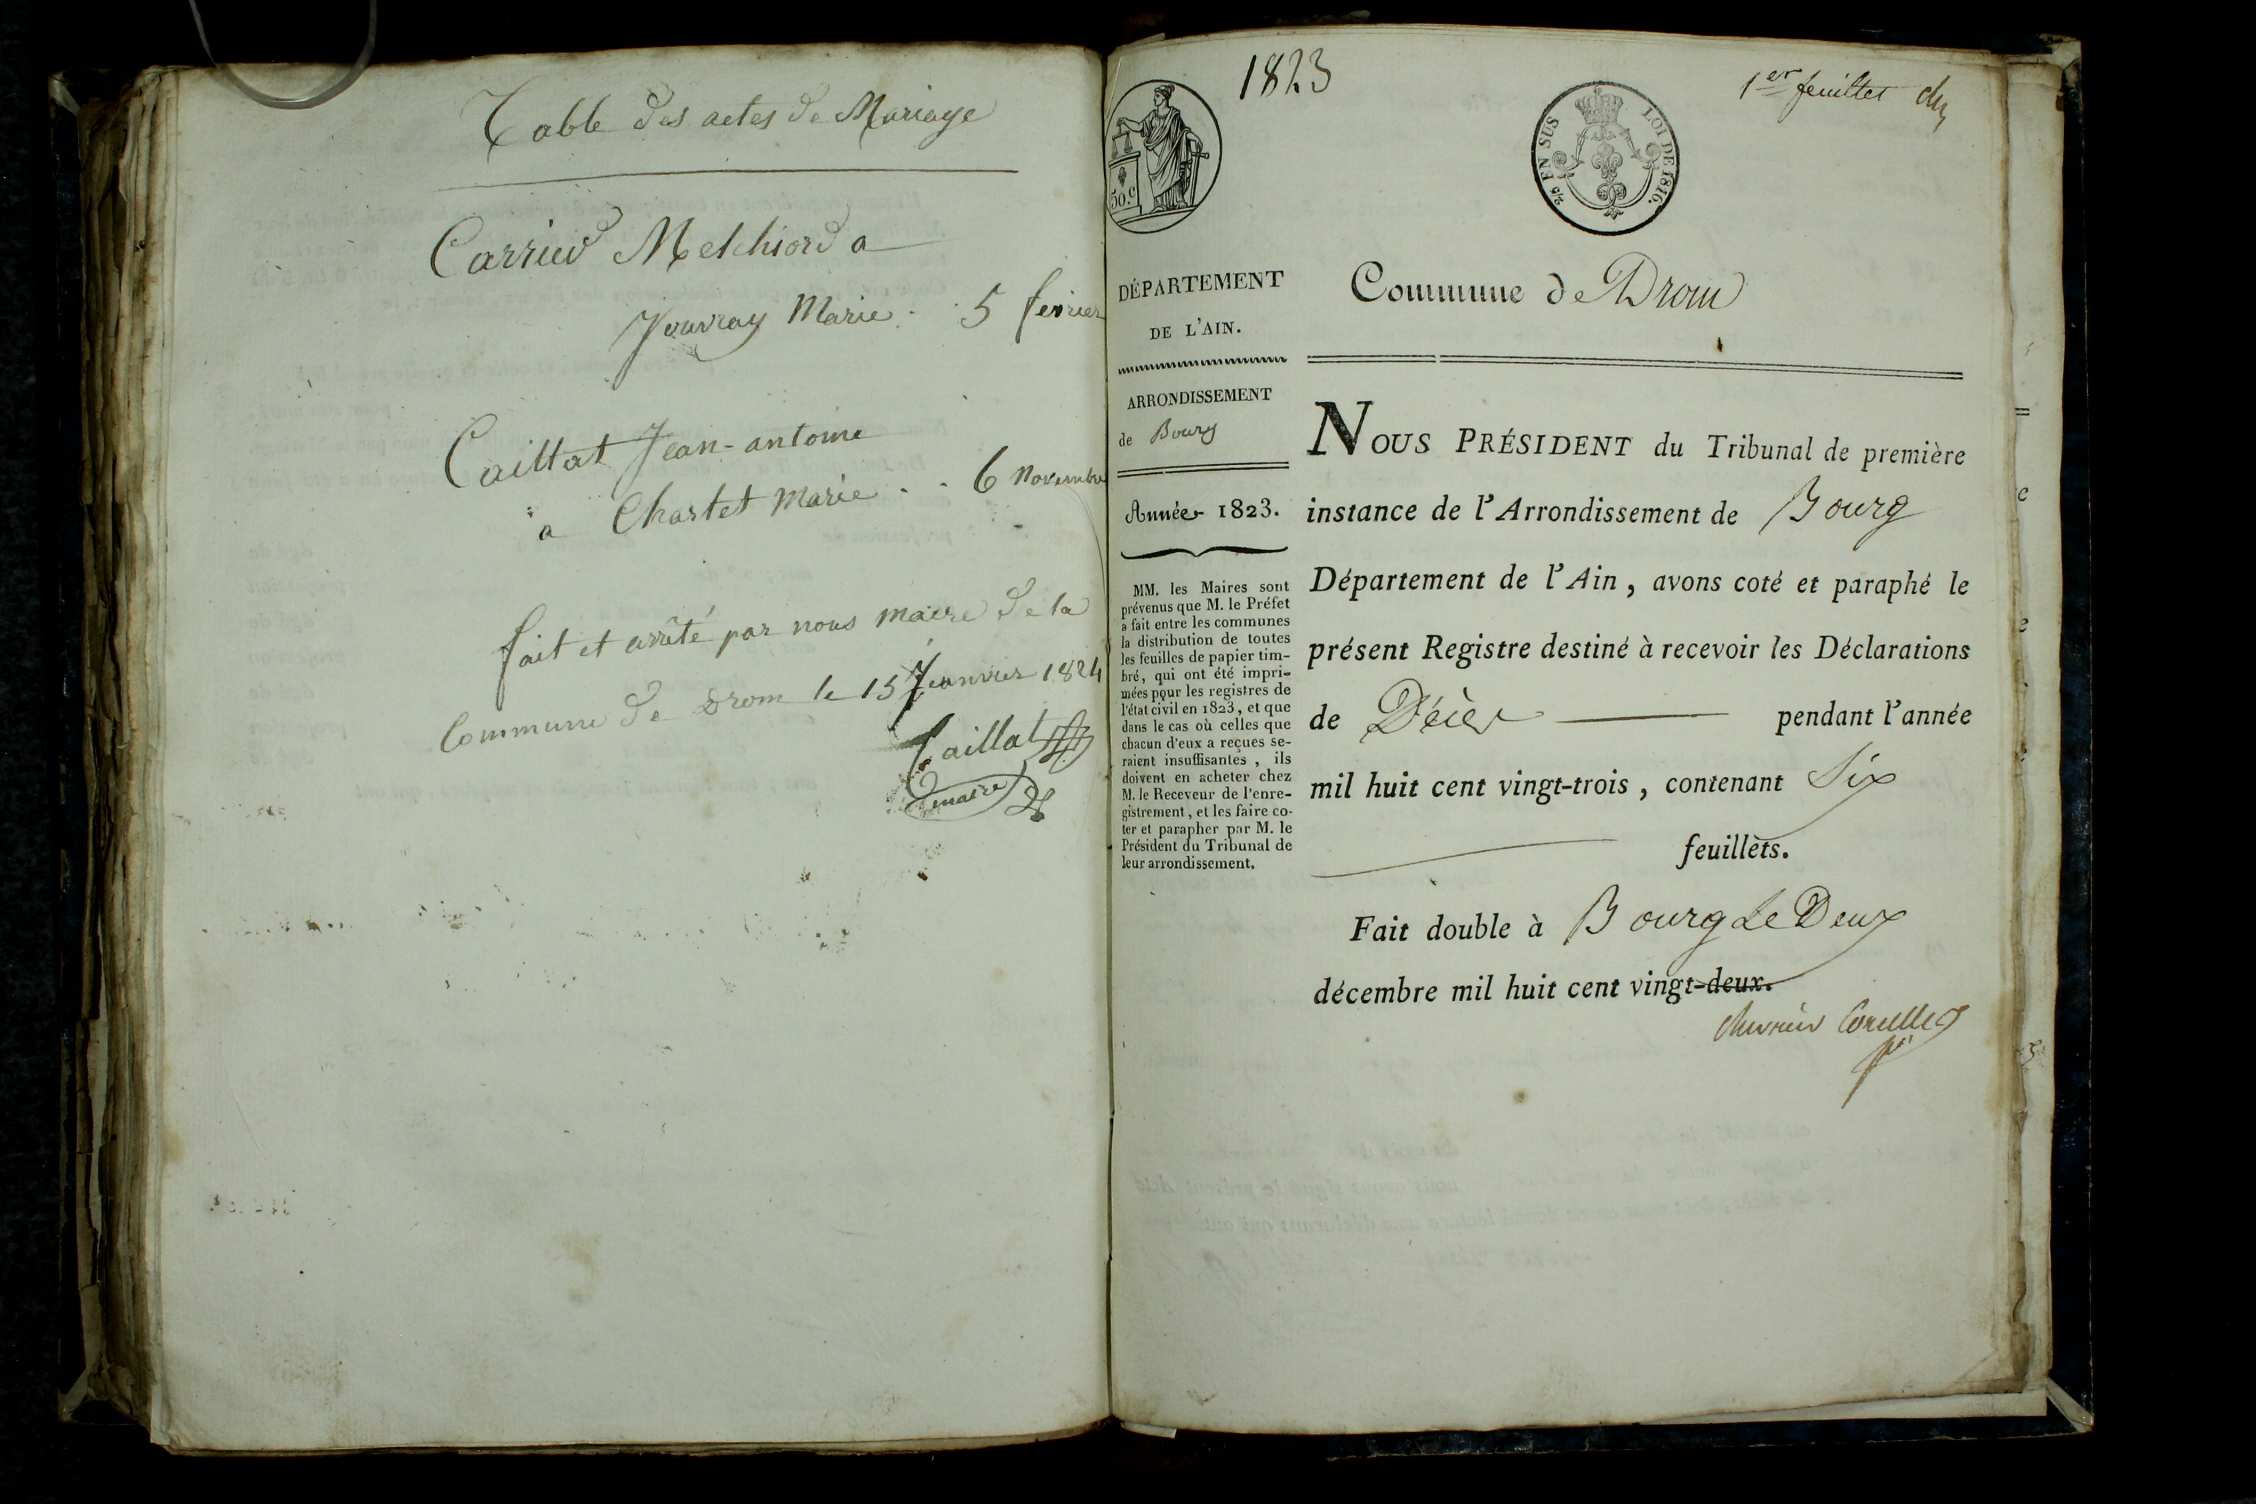 Table des actes de Mariage
Carrier Melchiord a
Jouvray Marie . 5 fevrier
Caillat Jean-antoine
a Chartet Marie . . 6 Novembre
fait et arrêté par nous maire de la
Commune de Drom le 15 Janvier 1824
Caillat
maire
1823
1er feuillet
50.c
2/5 EN SUS
LOI DE 1816.
DÉPARTEMENT
DE L'AIN.
ARRONDISSEMENT
de Bourg
Année 1823.
MM. les Maires sont
prévenus que M. le Préfet
a fait entre les communes
la distribution de toutes
les feuilles de papier tim-
bré, qui ont été impri-
mées pour les registres de
l'état civil en 1823, et que
dans le cas où celles que
chacun d'eux a reçues se-
raient insuffisantes , ils
doivent en acheter chez
M. le Receveur de l'enre-
gistrement, et les faire co-
ter et parapher par M. le
Président du Tribunal de
leur arrondissement.
Commune de Drom
NOUS PRÉSIDENT du Tribunal de première
instance de l'Arrondissement de Bourg
Département de l'Ain , avons coté et paraphé le
présent Registre destiné à recevoir les Déclarations
de Décès pendant l'année
mil huit cent vingt-trois , contenant Six
feuillets.
Fait double à Bourg Le Deux
décembre mil huit cent vingt-deux.